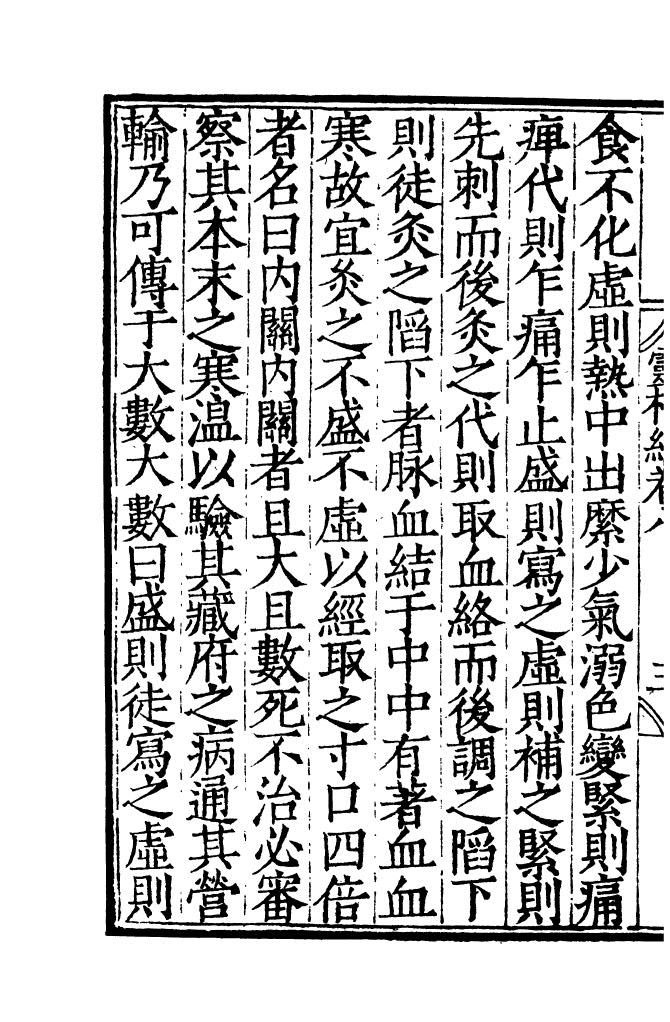 食不化虛則熱中出縻少氣溺色變緊則痛
痺代則乍痛乍止盛則寫之虛則補之緊則
先刺而後灸之代則取血絡而後調之陷下
則徒灸之陷下者脉血結于中中有著血血
寒故宜灸之不盛不虛以經取之寸口四倍
者名曰内關内關者且大且數死不治必審
察其本末之寒温以驗其藏府之病通其營
輸乃可傳于大數大數曰盛則徒寫之虛則